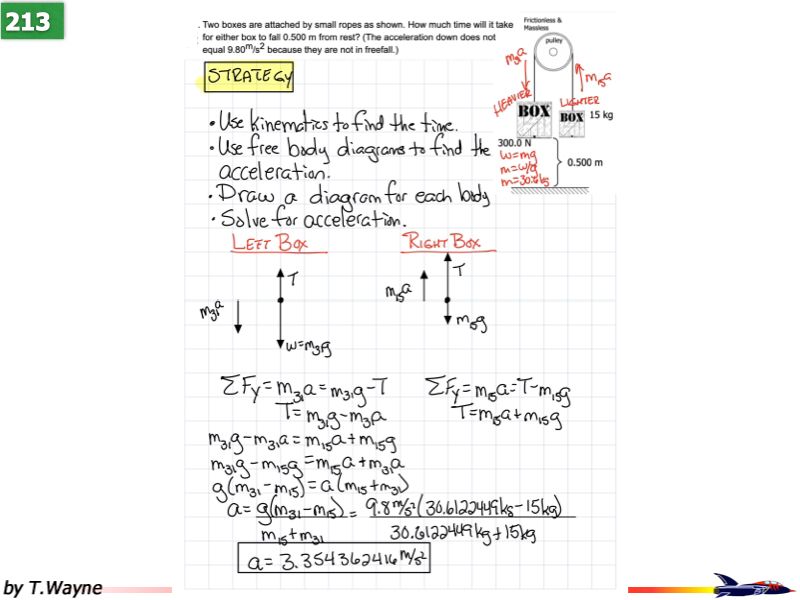 213
. Two boxes are attached by small ropes as shown. How much time will it take
for either box to fall 0.500 m from rest? (The acceleration down does not
equal 9.80m/s2 because they are not in freefall.)
Frictionless &
Massless
pulley
m31a
m15a
HEAVIER
LIGHTER
BOX
BOX
15 kg
300.0 N
W=mg
m=W/g
m=30.6kg
0.500 m
STRATEGY
• Use kinematics to find the time.
• Use free body diagrams to find the
acceleration.
• Draw a diagram for each body
• Solve for acceleration.
LEFT BOX
RIGHT BOX
T
T
m31a
m15a
m15g
W=m31g
ΣFy=m31a=m31g-T
ΣFy=m15a=T-m15g
T=m31g-m31a
T=m15a+m15g
m31g-m31a=m15a+m15g
m31g-m15g=m15a+m31a
g(m31-m15)=a(m15+m31)
a=g(m31-m15)=9.8m/s2(30.6122449kg-15kg)
m15+m31
30.6122449kg+15kg
a=3.354362416m/s2
by T.Wayne